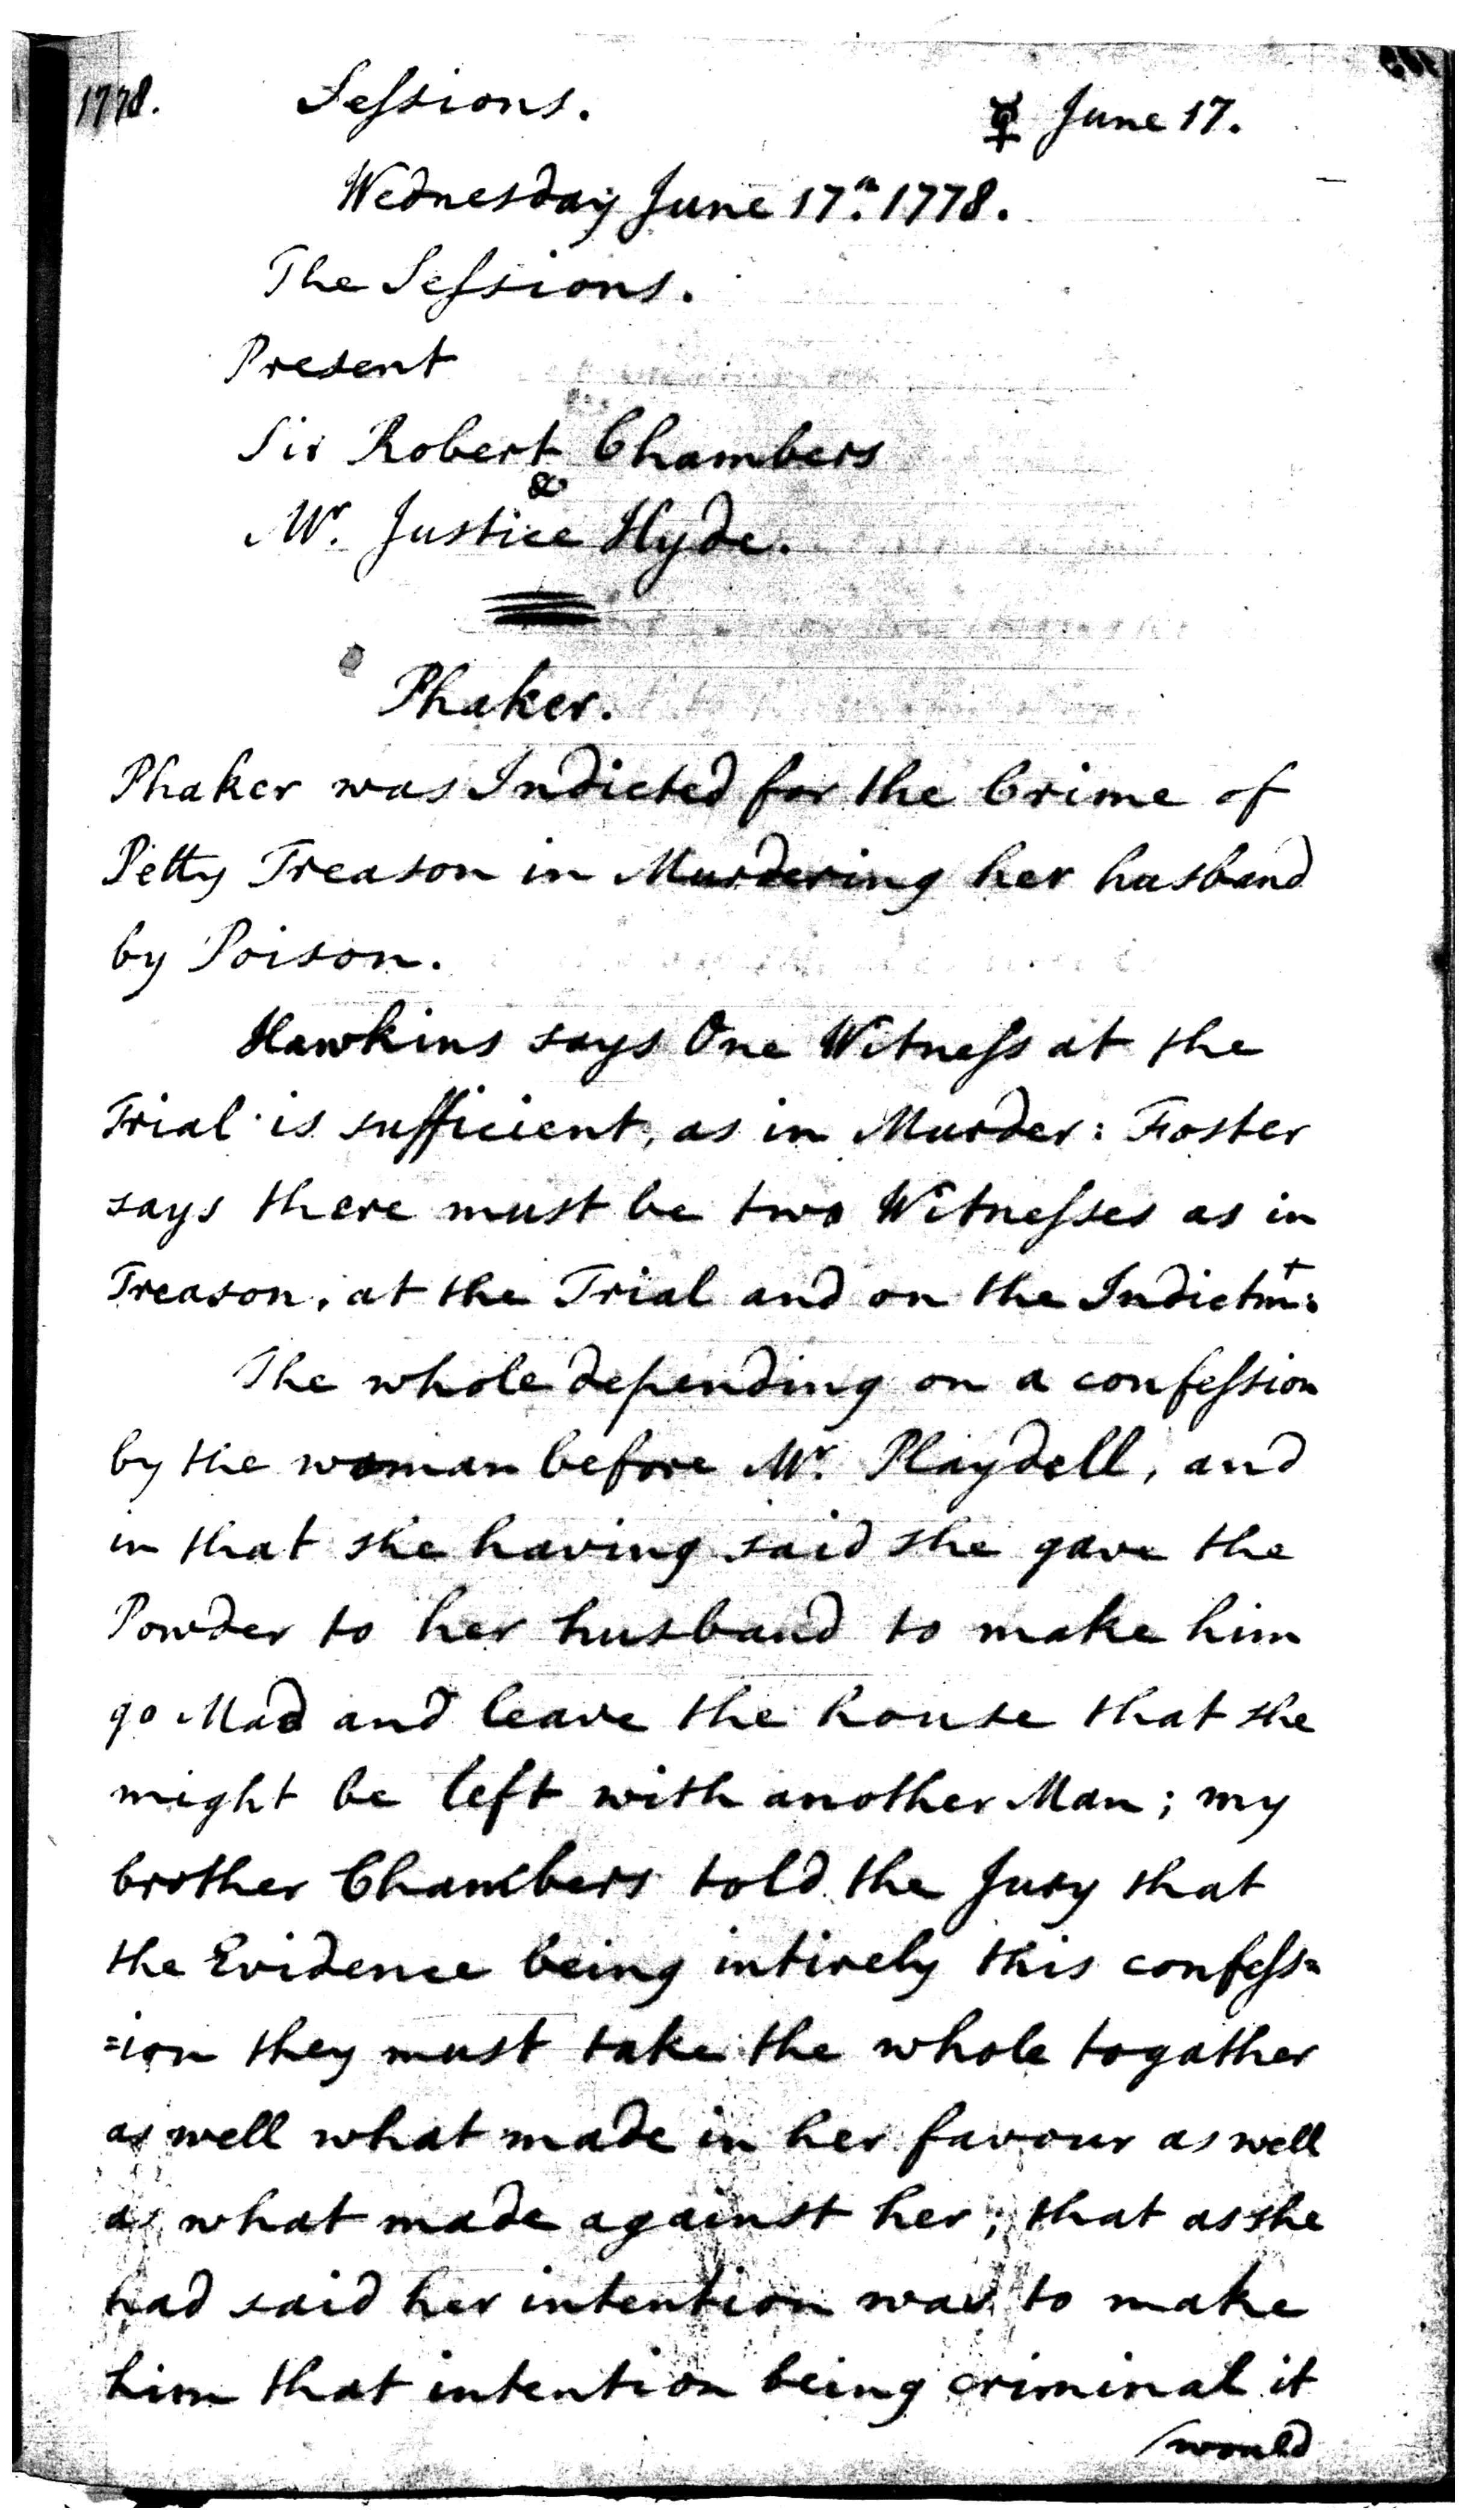 1778. Sessions. ☿ June 17.
Wednesday June 17th. 1778.
The Sessions.
Present
Sir Robert Chambers
&
Mr. Justice Hyde.
Phaker.
Phaker was Indicted for the Crime of
Petty Treason in Murdering her husband
by Poison.
Hawkins says One Witness at the
Trial is sufficient, as in Murder: Foster
says there must be two Witnesses as in
Treason, at the Trial and on the Indictmt:
The whole depending on a confession
by the woman before Mr. Playdell, and
in that she having said she gave the
Powder to her husband to make him
go Mad and leave the house that she
might be left with another Man; my
brother Chambers told the Jury that
the Evidence being intirely this confess=
=ion they must take the whole togather
as well what made in her favour as well
as what made against her; that as she
had said her intention was to make
him that intention being criminal it
/would